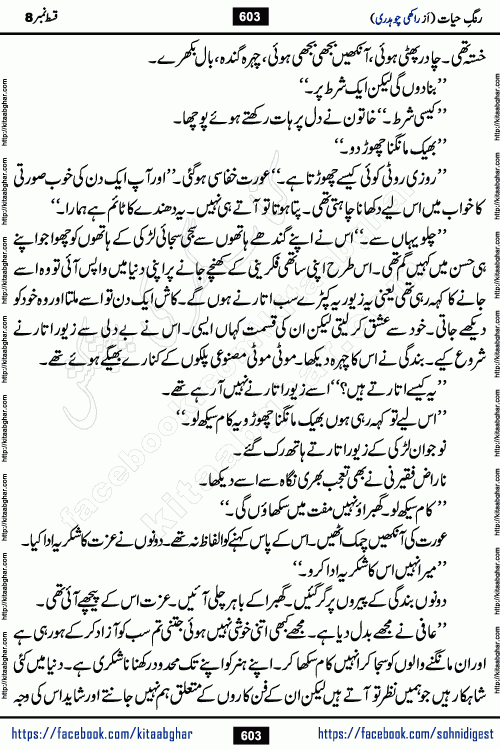 رنگِ حیات (از راکھی چوہدری)
603
قسط نمبر 8
خستہ تھی۔ چادر پھٹی ہوئی، آنکھیں بجھی بجھی ہوئی، چہرہ گندہ، بال بکھرے۔
’’بنا دوں گی لیکن ایک شرط پر۔‘‘
’’کیسی شرط۔‘‘ خاتون نے دل پر ہاتھ رکھتے ہوئے پوچھا۔
’’بھیک مانگنا چھوڑ دو۔‘‘
’’روزی روٹی کوئی کیسے چھوڑتا ہے۔‘‘ عورت خفا سی ہو گئی۔ ’’اور آپ ایک دن کی خوب صورتی
کا خواب میں اس لیے دکھانا چاہتی تھی۔ پتا ہوتا تو آتے ہی نہیں۔ یہ دھندے کا ٹائم ہے ہمارا۔‘‘
’’چلو یہاں سے۔‘‘ اس نے اپنے گندھے ہاتھوں سے سجی سجائی لڑکی کے ہاتھوں کو چھوا جو اپنے
ہی حسن میں کہیں گم تھی۔ اس طرح اپنی ساتھی فکرینی کے کھنچے جانے پر اپنی دنیا میں واپس آئی تو وہ اسے
جانے کا کہہ رہی تھی یعنی یہ زیور یہ کپڑے سب اتارنے ہوں گے۔ کاش ایک دن تو اسے ملتا اور وہ خود کو
دیکھے جاتی۔ خود سے عشق کر لیتی لیکن ان کی قسمت کہاں ایسی۔ اس نے بے دلی سے زیور اتارنے
شروع کیے۔ بندگی نے اس کا چہرہ دیکھا۔ موٹی موٹی مصنوعی پلکوں کے کنارے بھیگے ہوئے تھے۔
’’یہ کیسے اتارتے ہیں؟‘‘ اسے زیور اتارنے نہیں آ رہے تھے۔
’’اس لیے تو کہہ رہی ہوں بھیک مانگنا چھوڑو یہ کام سیکھ لو۔‘‘
نوجوان لڑکی کے زیور اتارتے ہاتھ رک گئے۔
ناراض فقیرنی نے بھی تعجب بھری نگاہ سے اسے دیکھا۔
’’کام سیکھ لو۔ گھبراؤ نہیں مفت میں سکھاؤں گی۔‘‘
عورت کی آنکھیں چمک اٹھیں۔ اس کے پاس کہنے کو الفاظ نہ تھے۔ دونوں نے عزت کا شکریہ ادا کیا۔
’’میرا نہیں اس کا شکریہ ادا کرو۔‘‘
دونوں بندگی کے پیروں پر گر گئیں۔ گھبرا کے باہر چلی آئیں۔ عزت اس کے پیچھے آئی تھی۔
’’عافی نے مجھے بدل دیا ہے۔ مجھے کبھی اتنی خوشی نہیں ہوئی جتنی تم سب کو آزاد کر کے ہو رہی ہے
اور ان مانگنے والوں کو سجا کر انہیں کام سکھا کر۔ اپنے ہنر کو اپنے تک محدود رکھنا ناشکری ہے۔ دنیا میں کئی
شاہکار ہیں جو ہمیں نظر تو آتے ہیں لیکن ان کے فن کاروں کے متعلق ہم نہیں جانتے اور شاید اس کی وجہ
https://facebook.com/kitaabghar
603
https://facebook.com/sohnidigest
http://kitaabghar.com